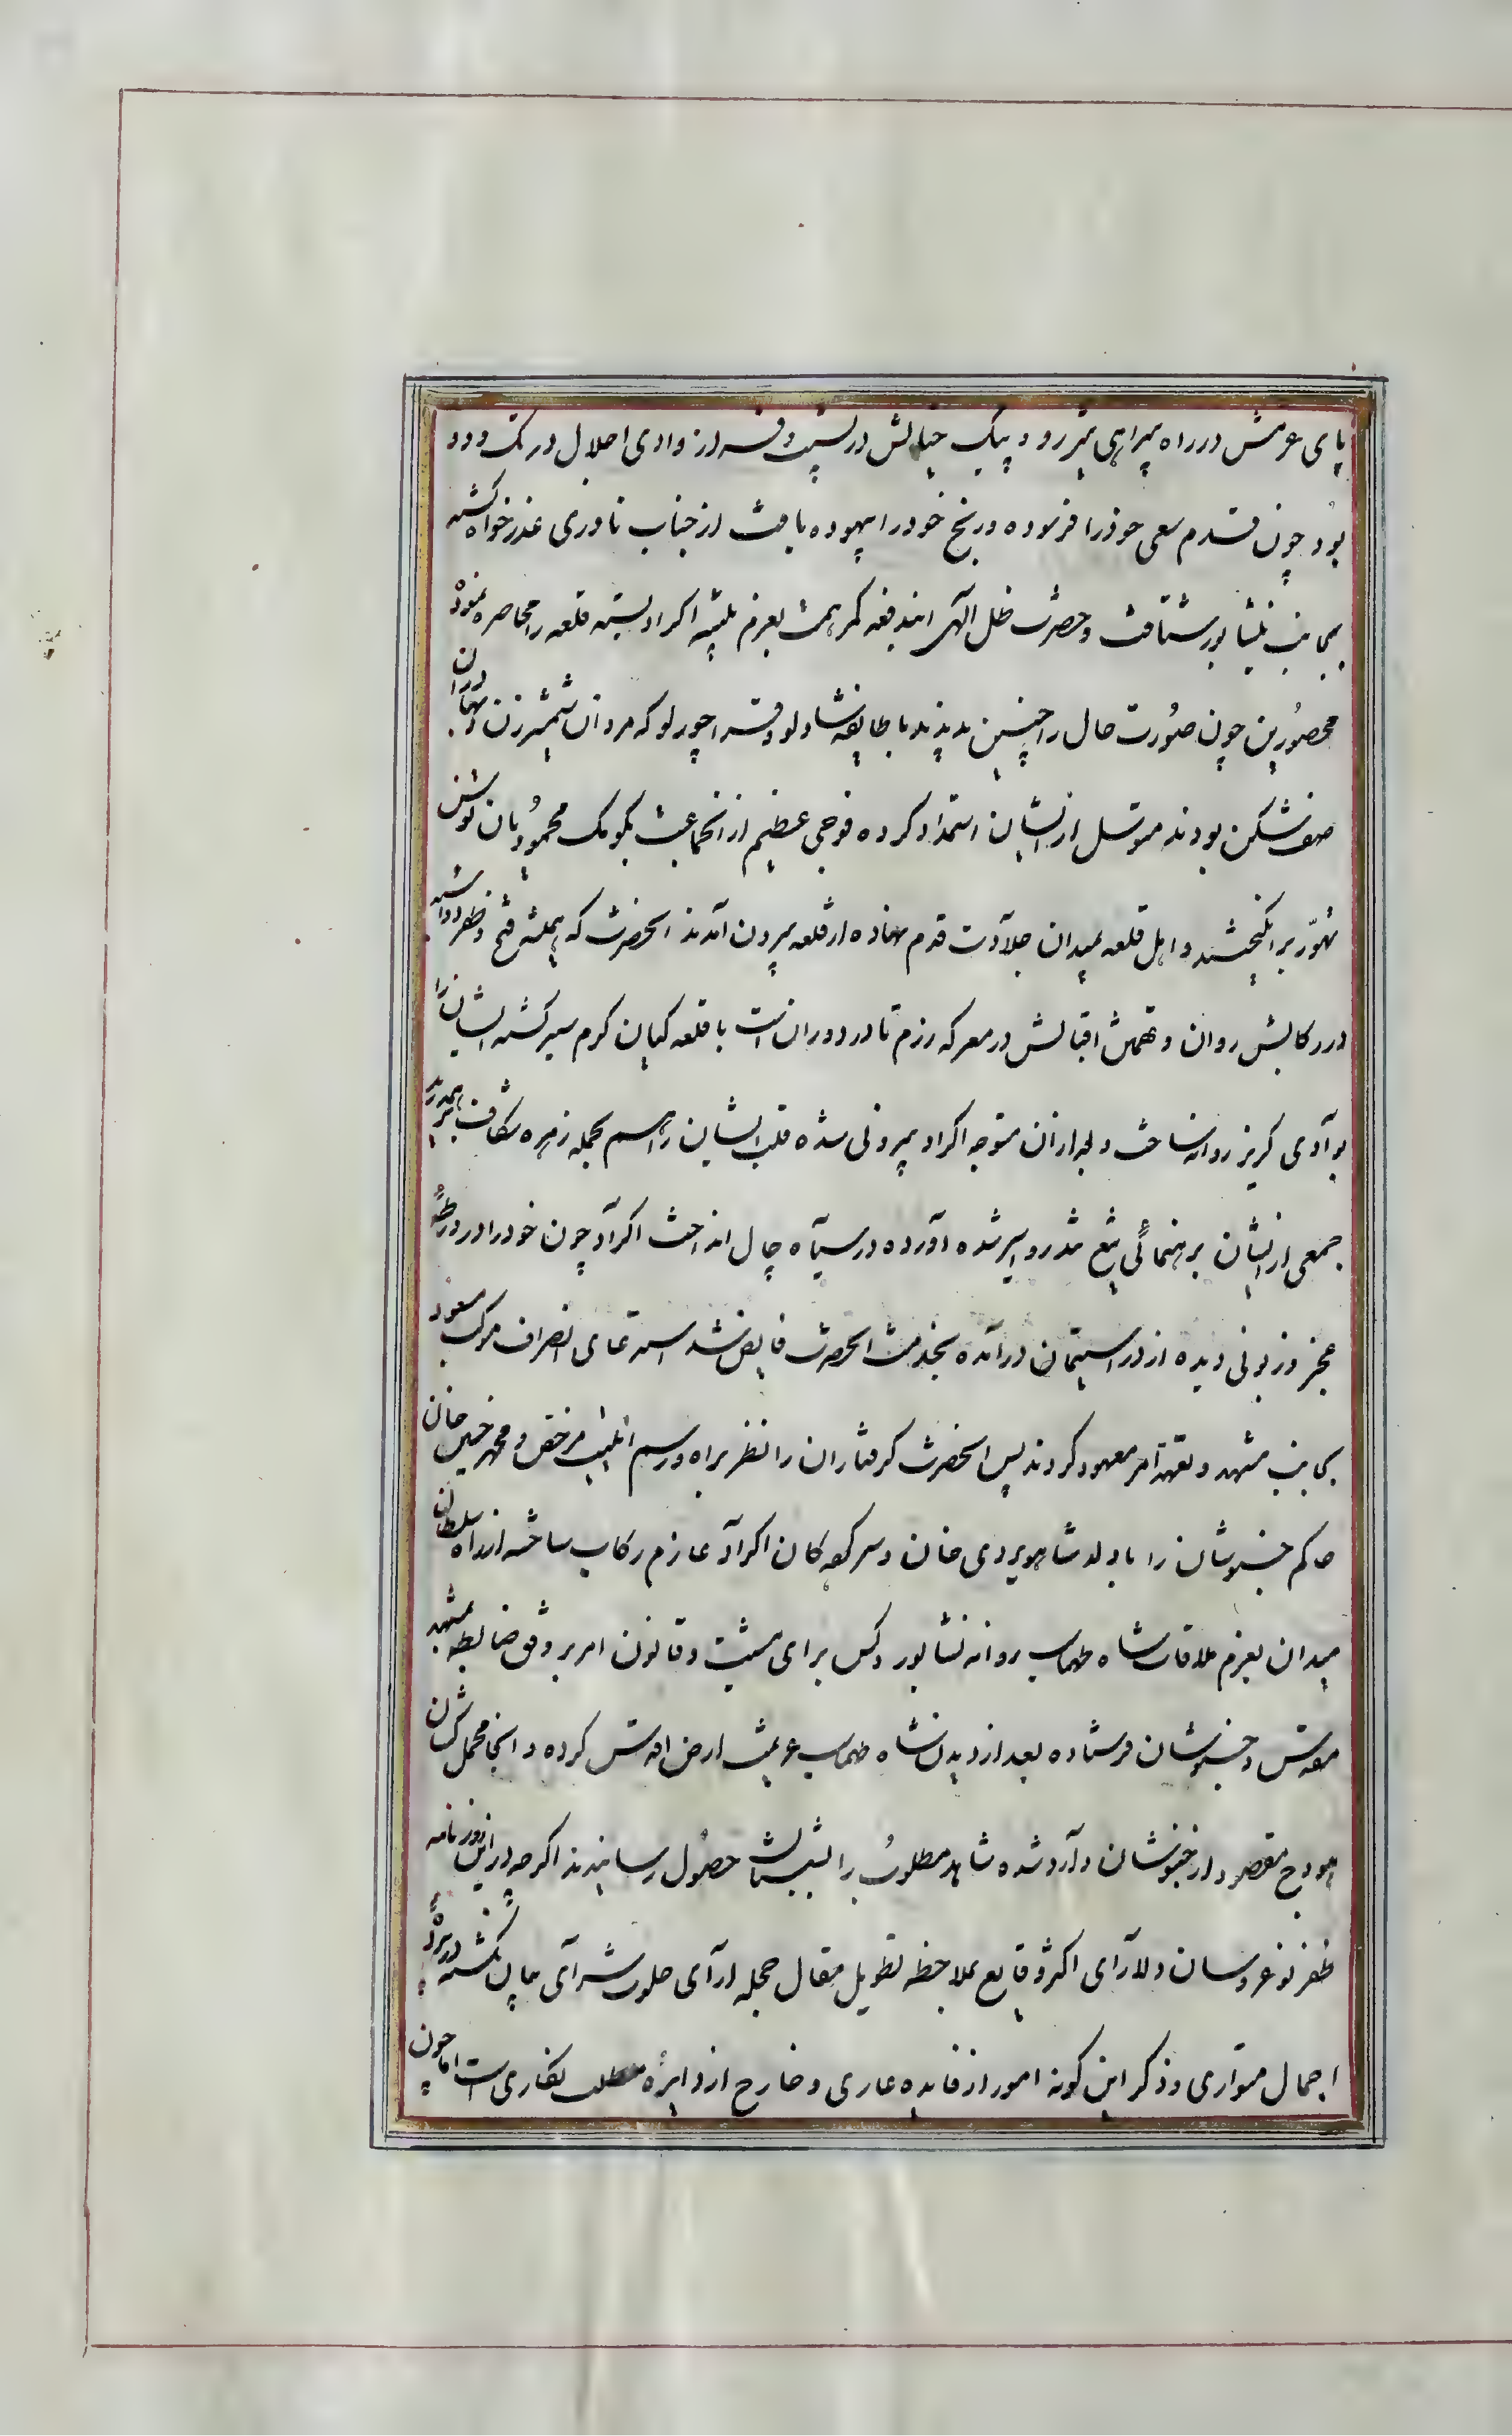 پای عزمش در راه بیراهی تیزرو و پیک خیالش در پشت و فراز وادی اضلال در تک و دو
بود چون قدم سعی خود را فرسوده و رنج خود را بیهوده یافت از جناب نادری عذرخواه گشته
بجانب نیشابور شتافت و حضرت ظل الهی ایندفعه کمر همت بعزم تنبیه اکراد بسته قلعه را محاصره نمود
محصورین چون صورت حال را چنین دیدند با طایفه شادلو و قراچورلو که مردان شمشیرزن و بهادران
صف شکن بودند متوسل از ایشان استمداد کرده فوجی عظیم از آنجماعت بکومک محمودیان توسن
تهور برانگیختند و اهل قلعه بمیدان جلادت قدم نهاده از قلعه بیرون آمدند آنحضرت که همیشه فتح و ظفر دواسبه
در رکابش روان و تهمتن اقبالش در معرکه رزم قادر دوران است با قلعه کیان گرم ستیز گشته ایشان را
بوادی گریز روانه ساخت و بعد از آن متوجه اکراد بیرونی شده قلب ایشان را هم بحمله زهره شکاف بر هم درید
جمعی از ایشان برهنمائی تیغ تندرو اسیر شده آورده در سیاه چال انداخت اکراد چون خود را در ورطهٔ
عجز و زبونی دیده از در استیمان درآمده بخدمت آنحضرت فایض شد استدعای انصراف موکب مسعود
بجانب مشهد و تعهد امر معهود کردند پس آنحضرت گرفتاران را نظر براه و رسم ایلیت مرخص و محمد حسین خان
حاکم خبوشان را با ولد شاهویردی خان و سرکردگان اکراد عازم رکاب ساخته از راه سلطان
میدان بعزم ملاقات شاه طهماسب روانه نشابور و کس برای مشیت و قانون امر بر وفق ضابطه بمشهد
مقدس و خبوشان فرستاده بعد از دیدن شاه طهماسب عزیمت ارض اقدس کرده و آنجا محمل کشان
هودج مقصود از خبوشان وارد شده شاهد مطلوب را بشبستان حصول رسانیدند اگر چه در این روزنامه
ظفر نوعروسان دلارای اکثر وقایع بملاحظه تطویل مقال حجله آرای جلوت سرای بیان نگشته در پرده
اجمال متواری و ذکر این گونه امور از فایده عاری و خارج از دایره مطلب نگاری است اما چون